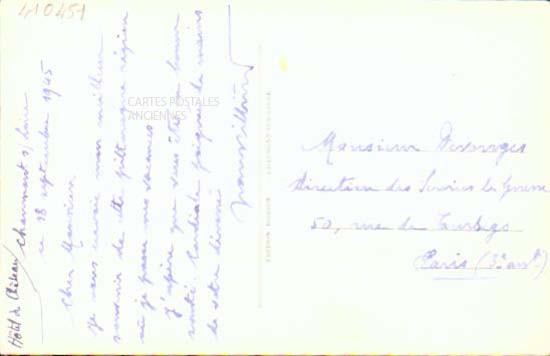 410451
Hôtel du Château
Chaumont s/ Loire
ce 18 septembre 1945
Cher Monsieur
Je vous envoie mon meilleur
souvenir de cette pittoresque région
où je passe mes vacances
J'espère que vous êtes en bonne
santé. Cordiale poignée de mains
de votre dévoué
CARTES POSTALES
ANCIENNES
Monsieur
Directeur des Services de Guerre
50, rue de Turbigo
Paris (3e arrt)